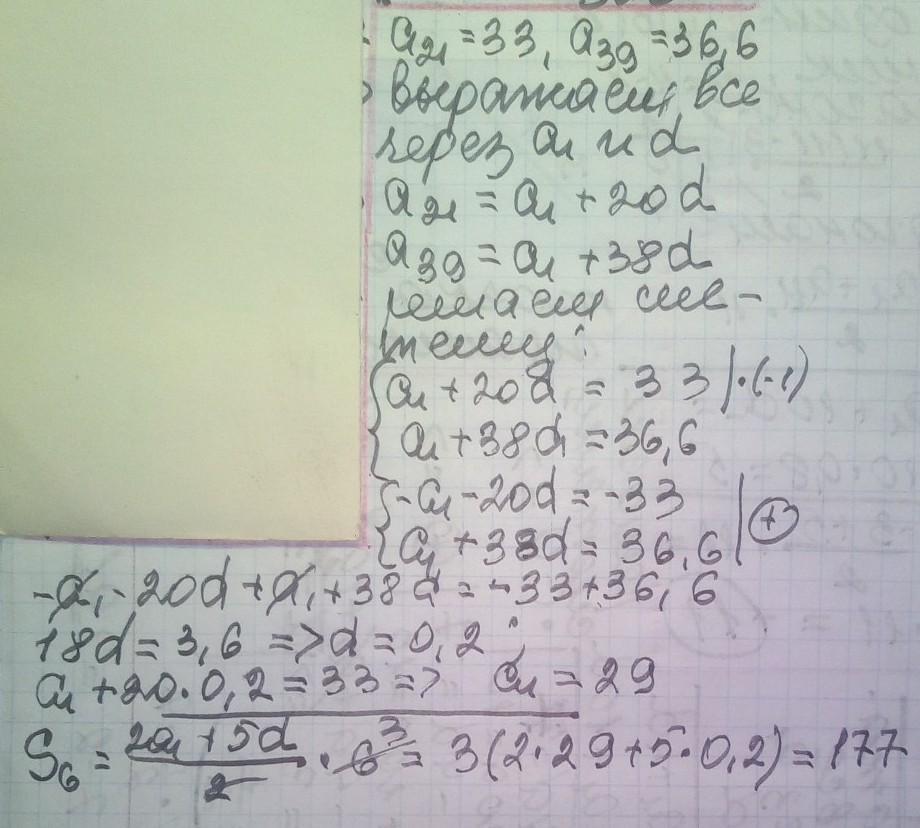 a₂₁ = 33, a₃₉ = 36,6
выражаем все
через a₁ и d
a₂₁ = a₁ + 20d
a₃₉ = a₁ + 38d
решаем сис-
тему:
{ a₁ + 20d = 33 | ·(-1)
a₁ + 38d = 36,6
{ -a₁ - 20d = -33
a₁ + 38d = 36,6 | (+)
-a₁ - 20d + a₁ + 38d = -33 + 36,6
18d = 3,6 => d = 0,2
a₁ + 20·0,2 = 33 => a₁ = 29
S₆ = (2a₁ + 5d)/2 · 6 ³ = 3(2·29+5·0,2) = 177